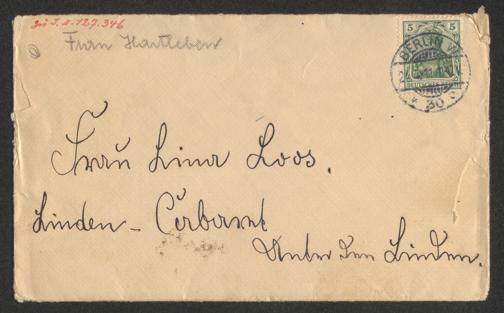 zu I.N. 127.346
Frau Hartleben
5 5
BERLIN W.
DEUTSCHES REICH
* 30
Frau Lina Loos.
Linden - Cabaret
Unter den Linden.